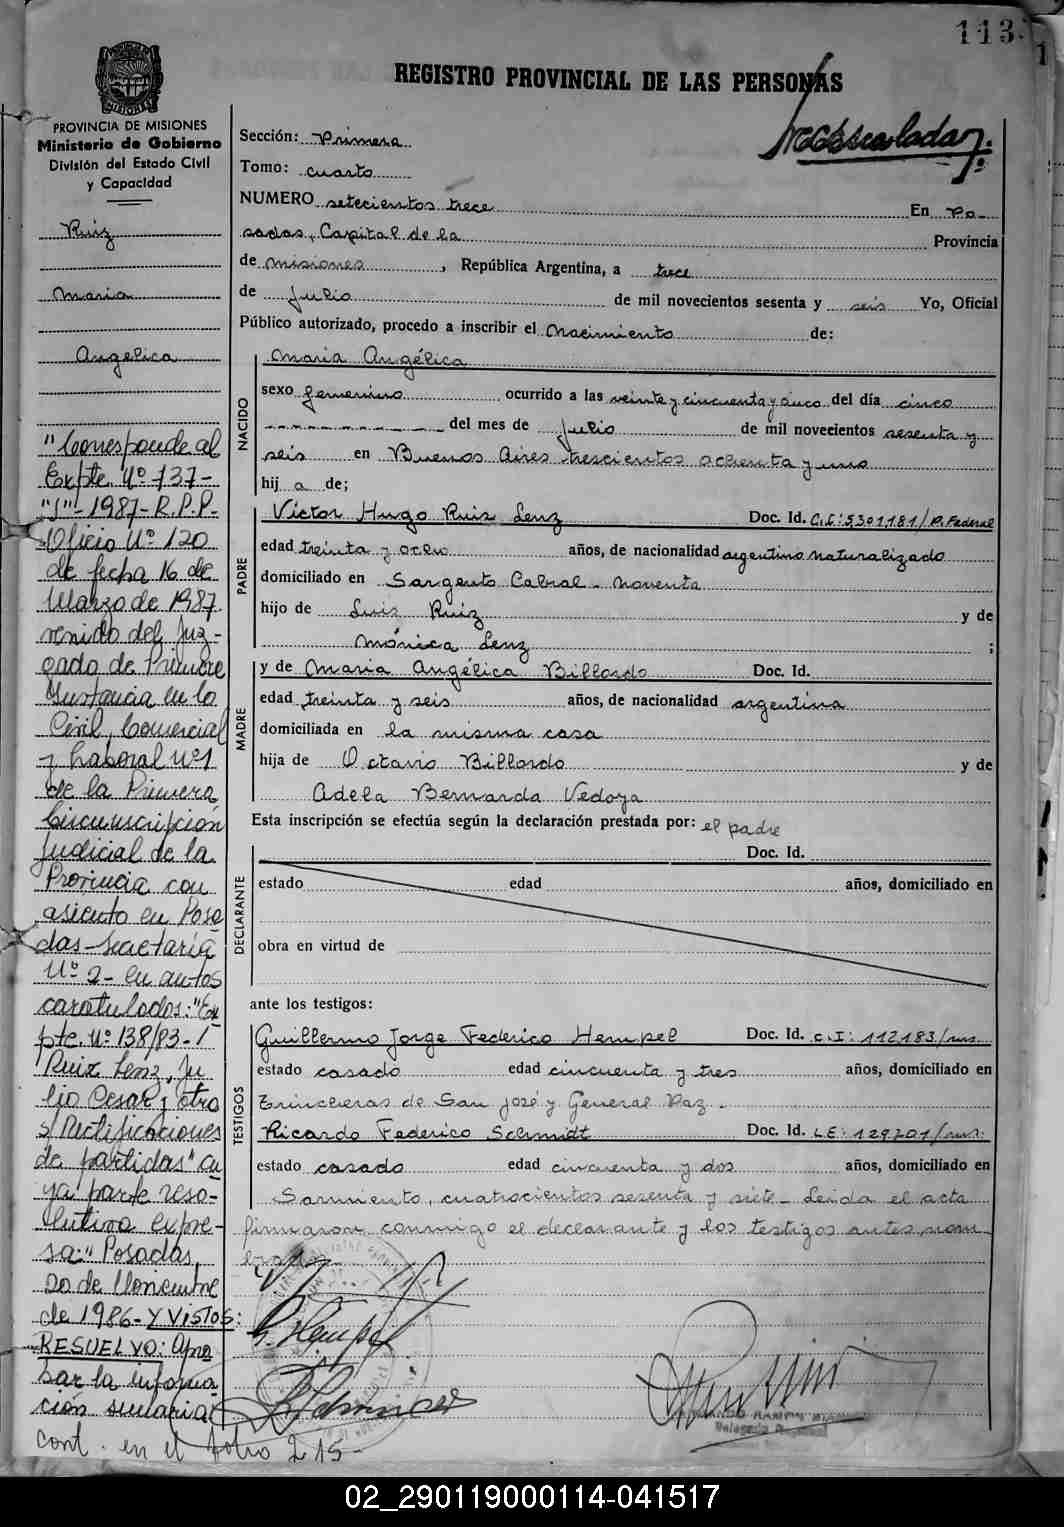 113.
REGISTRO PROVINCIAL DE LAS PERSONAS
PROVINCIA DE MISIONES
Ministerio de Gobierno
División del Estado Civil
y Capacidad
Ruiz
Maria
Angelica
"Corresponde al
Expte. Nº 137-
"J"-1987-R.P.P.
Oficio Nº 120
de fecha 16 de
Marzo de 1987
venido del Juz-
gado de Primera
Instancia en lo
Civil, Comercial
y Laboral Nº1
de la Primera
Circunscripción
Judicial de la
Provincia con
asiento en Posa
das-Secretaría
Nº 2- en autos
caratulados: "Ex
pte. Nº 138/83-
Ruiz Lenz, Ju
lio Cesar y otro
s/ Rectificaciones
de partidas" cu
ya parte reso-
lutiva expre-
sa:" Posadas,
20 de Noviembre
de 1986- Y VISTOS:
RESUELVO: Apro
bar la informa
ción sumaria
cont. en el folio 215-
Sección: Primera
Tomo: cuarto
NUMERO setecientos trece En Po-
sadas, Capital de la Provincia
de misiones, República Argentina, a trece
de Julio de mil novecientos sesenta y seis Yo, Oficial
Público autorizado, procedo a inscribir el Nacimiento de:
NACIDO
Maria Angélica
sexo femenino ocurrido a las veinte y cincuenta y cinco del día cinco
del mes de Julio de mil novecientos sesenta y
seis en Buenos Aires trescientos ochenta y uno
hij a de;
PADRE
Victor Hugo Ruiz Lenz Doc. Id. C.I: 5301181/P. Federal
edad treinta y ocho años, de nacionalidad argentino naturalizado
domiciliado en Sargento Cabral - noventa
hijo de Luis Ruiz y de
Mónica Lenz ;
MADRE
y de Maria Angélica Billordo Doc. Id.
edad treinta y seis años, de nacionalidad argentina
domiciliada en la misma casa
hija de Octavio Billordo y de
Adela Bernarda Vedoya
Esta inscripción se efectúa según la declaración prestada por: el padre
DECLARANTE
Doc. Id.
estado edad años, domiciliado en
obra en virtud de
ante los testigos:
TESTIGOS
Guillermo Jorge Federico Hempel Doc. Id. C.I: 112183/mis.
estado casado edad cincuenta y tres años, domiciliado en
Trincheras de San José y General Paz.-
Ricardo Federico Schmidt Doc. Id. L.E: 129201/mis.
estado casado edad cincuenta y dos años, domiciliado en
Sarmiento, cuatrocientos sesenta y siete - Leida el acta
firmaron conmigo el declarante y los testigos antes nom
brados
02_290119000114-041517